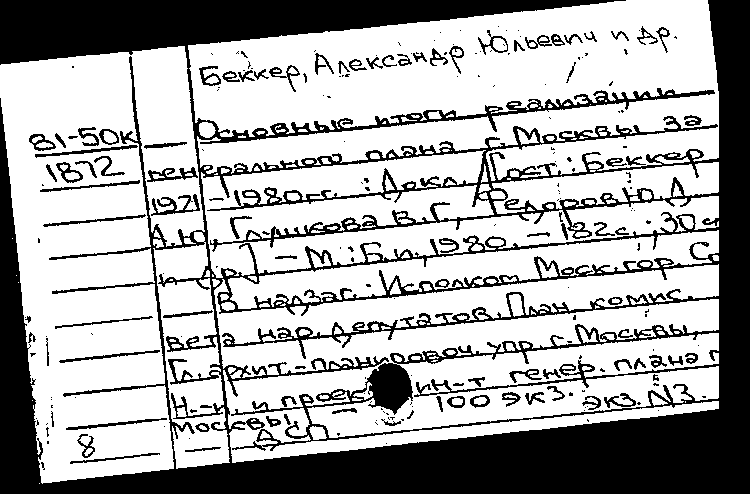 Беккер, Александр Юльевич и др.
81-50к Основные итоги реализации
1872 генерального плана г. Москвы за
1971-1980гг. : Докл. / Сост.: Беккер
А.Ю., Глушкова В.Г., Федоров Ю.Д.
и др.]. - М. : Б.и., 1980. - 182с. ; 30с
В надзаг.: Исполком Моск. гор. Со
вета нар. депутатов. План. комис.
Гл. архит.-планировоч. упр. г. Москвы,
Н.-и. и проек ин-т генер. плана г
Москвы. - 100 экз. экз. N3.
8 ДСП.